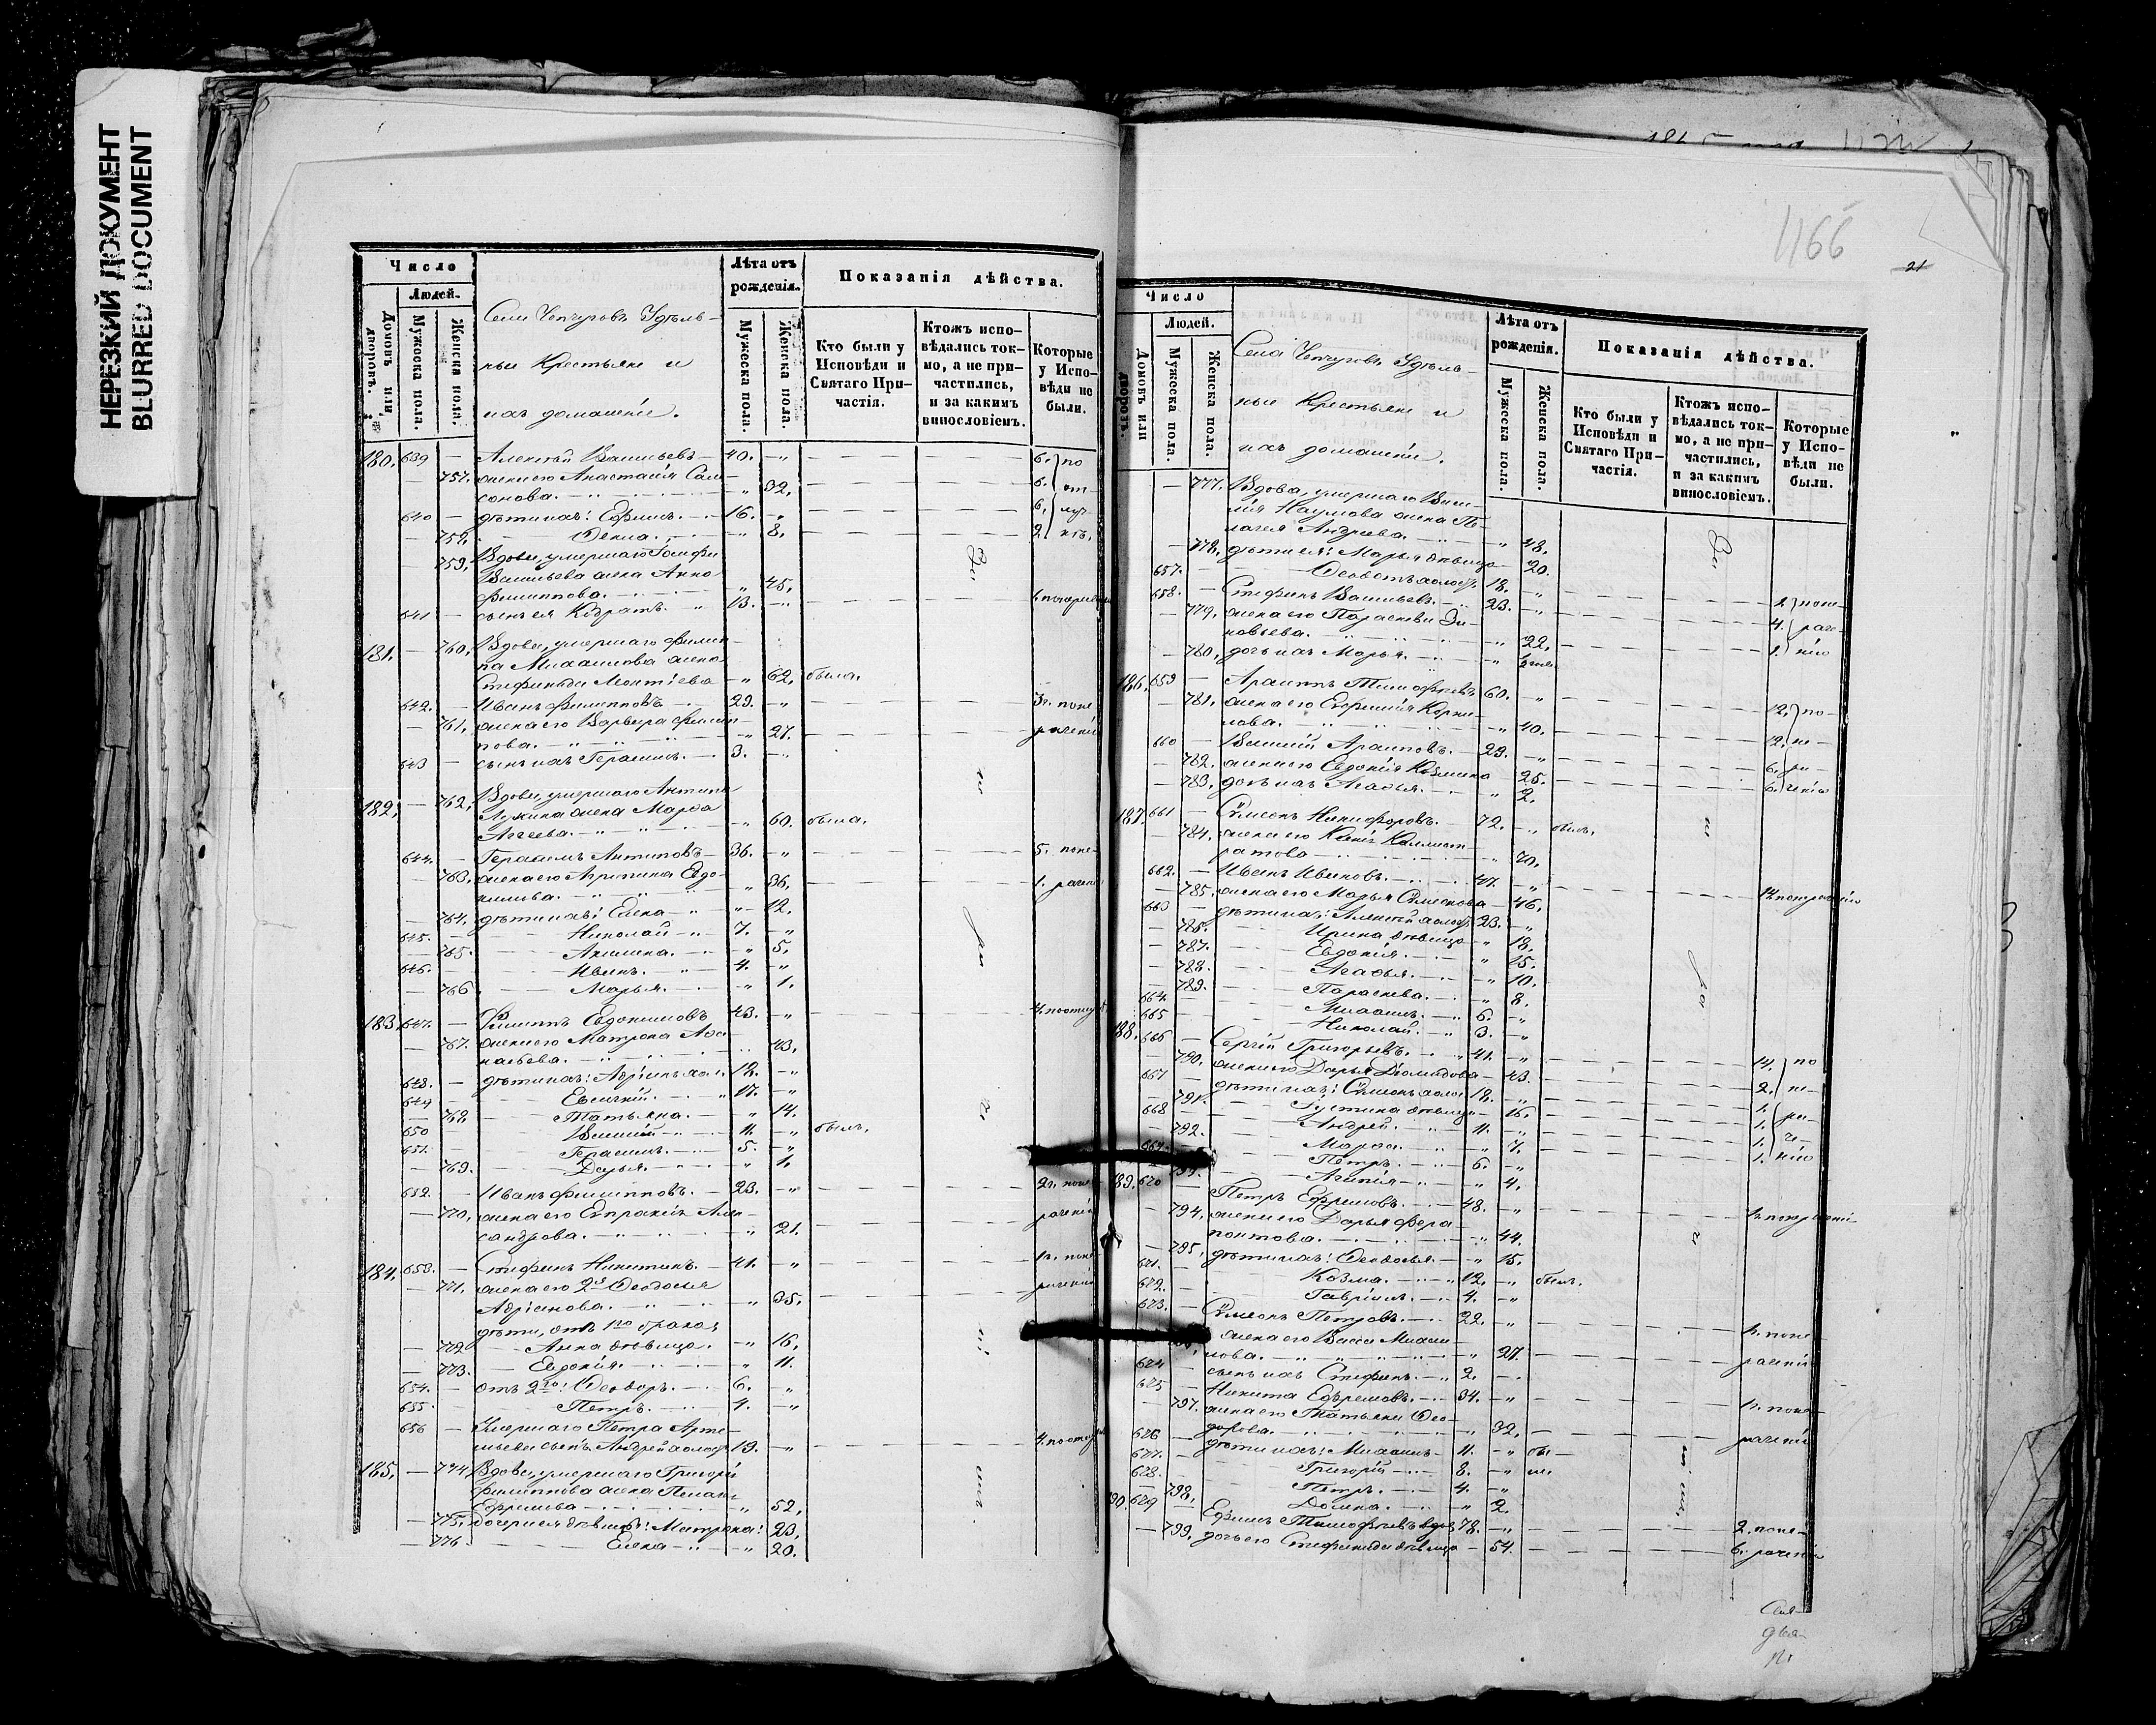 НЕРЕЗКИЙ ДОКУМЕНТ
BLURRED DOCUMENT
Число
Людей.
Домовъ или дворовъ.
Мужеска пола.
Женска пола.
Села Чепчуговъ Удѣль-
ные Крестьяне и
ихъ домашніе.
Лѣта отъ рожденія.
Мужеска пола.
Женска пола.
Показанія дѣйства.
Кто были у Исповѣди и Святаго Причастія.
Ктожъ исповѣдались токмо, а не причастились, и за какимъ винословіемъ.
Которые у Исповѣди не были.
180. 639 — Алексѣй Васильевъ — 40. 6. по
— 757. жена его Анастасія Сам-
сонова. 32. 6. от-
640 — дѣти ихъ: Ефимъ. 16. 6. луч-
— 758. Ѳекла. 8. 2. кѣ.
— 759. Вдова, умершаго
Васильева жена Анна
Филиппова. 45.
641 — сынъ ея Кодратъ. 13.
181. — 760. Вдова, умершаго Филип-
па Михайлова жена
Стефанида Монтіева 62. была.
642. — Иванъ Филипповъ 29. 3. поне-
— 761. жена его Варвара Филип-
пова. 27. раченію
643 — сынъ ихъ Герасимъ. 3.
182. — 762. Вдова, умершаго Антипа
Лукина жена Марѳа
Агеева. 60. была.
644. — Герасимъ Антиповъ 36. 5. поне-
— 763. жена его Агрипина Евдо-
кимова. 36. 1. рачен
— 764. дѣти ихъ: Елена 12.
645. — Николай 7.
— 765. Акилина. 5.
646. — Иванъ. 4.
— 766 Марья. 1.
183. 647. — Филиппъ Евдокимовъ 43.
— 767. жена его Матрона Аѳа-
насьева. 43.
648. — дѣти ихъ: Адріанъ хол. 18.
649 Евсигній. 17.
— 768 Татьяна. 14.
650 Василій 11. былъ.
651. Герасимъ. 5.
— 769. Дарья. 1.
652. — Иванъ Филипповъ. 23. 2. поне-
— 770. жена его Евпраксія Алек-
сандрова. 21. раченію
184. 653. — Стефанъ Никитинъ. 41. 1. поне-
— 771. жена его 2я Ѳеодосья
Адріанова. 35. раченію
дѣти, отъ 1го брака
— 772 Анна дѣвица. 16.
— 773. Евдокія. 11.
654. — отъ 2го: Ѳеодоръ. 6.
655. — Петръ. 4.
656 — Умершаго Петра Арте-
мьева сынъ Андрей холос 19.
185. — 774. Вдова, умершаго Григорія
Филиппова жена Пелагія
Ефремова 52.
— 775. дочери ея дѣвицы: Матрона: 23.
— 776. Елена 20.
1166
21
Число
Людей.
Домовъ или дворовъ.
Мужеска пола.
Женска пола.
Села Чепчуговъ Удѣль-
ные Крестьяне и
ихъ домашніе.
Лѣта отъ рожденія.
Мужеска пола.
Женска пола.
Показанія дѣйства.
Кто были у Исповѣди и Святаго Причастія.
Ктожъ исповѣдались токмо, а не причастились, и за какимъ винословіемъ.
Которые у Исповѣди не были.
— 777. Вдова, умершаго Васи-
лія Наумова жена Пе-
лагея Андреева. 48.
— 778. дѣти ея: Марья дѣвица 20.
657. — Ѳеоктистъ холос. 18.
658. — Стефанъ Васильевъ. 23. 2. поне-
— 779. жена его Параскева Зи-
новьева. 22. 4. раче-
— 780. дочь ихъ Марья. 1. нію
186. 659 — Архиппъ Тимофѣевъ 60. 12. по-
— 781. жена его Евфимія Корни-
лова. 40. 12. не-
660 — Василій Архиповъ. 29. 6. ра-
— 782. жена его Евдокія Козмина 25. 6. ченію
— 783. дочь ихъ Агаѳья. 2.
187. 661 — Сѵмеонъ Никифоровъ. 72. былъ.
— 784. жена его Ксенія Каллист-
ратова 70.
662. — Иванъ Ивановъ. 47.
— 785. жена его Марья Сѵмеонова 46.
663 — дѣти ихъ: Алексѣй холос. 23.
— 786. Ирина дѣвица 18.
— 787. Евдокія. 15.
— 788. Агаѳья. 10.
— 789. Параскева. 8.
664. Михаилъ. 6.
665 Николай. 3.
188. 666 — Сергій Григорьевъ. 41. 14. по
— 790. жена его Дарья Діомидова 43. 2. не-
667 дѣти ихъ: Сѵмеонъ холос 18. 1. ра-
— 791. Іустина дѣвица 16. 1. че-
668 Андрей. 11. 1. нію
— 792. Марѳа. 7. 1.
669. Петръ. 6.
793. Агапія 4.
189. 670 Петръ Ефремовъ. 48.
— 794. жена его Дарья Фера-
понтова. 44.
— 795. дѣти ихъ: Ѳеодосья. 15.
671. Козма. 12. былъ.
672. Гавріилъ. 4.
673. — Сѵмеонъ Петровъ. 22. 1. поне-
жена его Васса Михаи-
лова. 27. раченію
674 сынъ ихъ Стефанъ. 2.
675 — Никита Ефремовъ. 34. 1. поне-
— 797. жена его Татьяна Ѳео-
дорова. 32. раченію
676 дѣти ихъ: Михаилъ 11. бы-
677. Григорій 8. ли.
678. Петръ. 4.
— 798. Домна. 2.
190. 679 — Ефимъ Тимофѣевъ вдов 78. 2. поне-
— 799. дочь его Стефанида дѣвица 54. 6. раченію